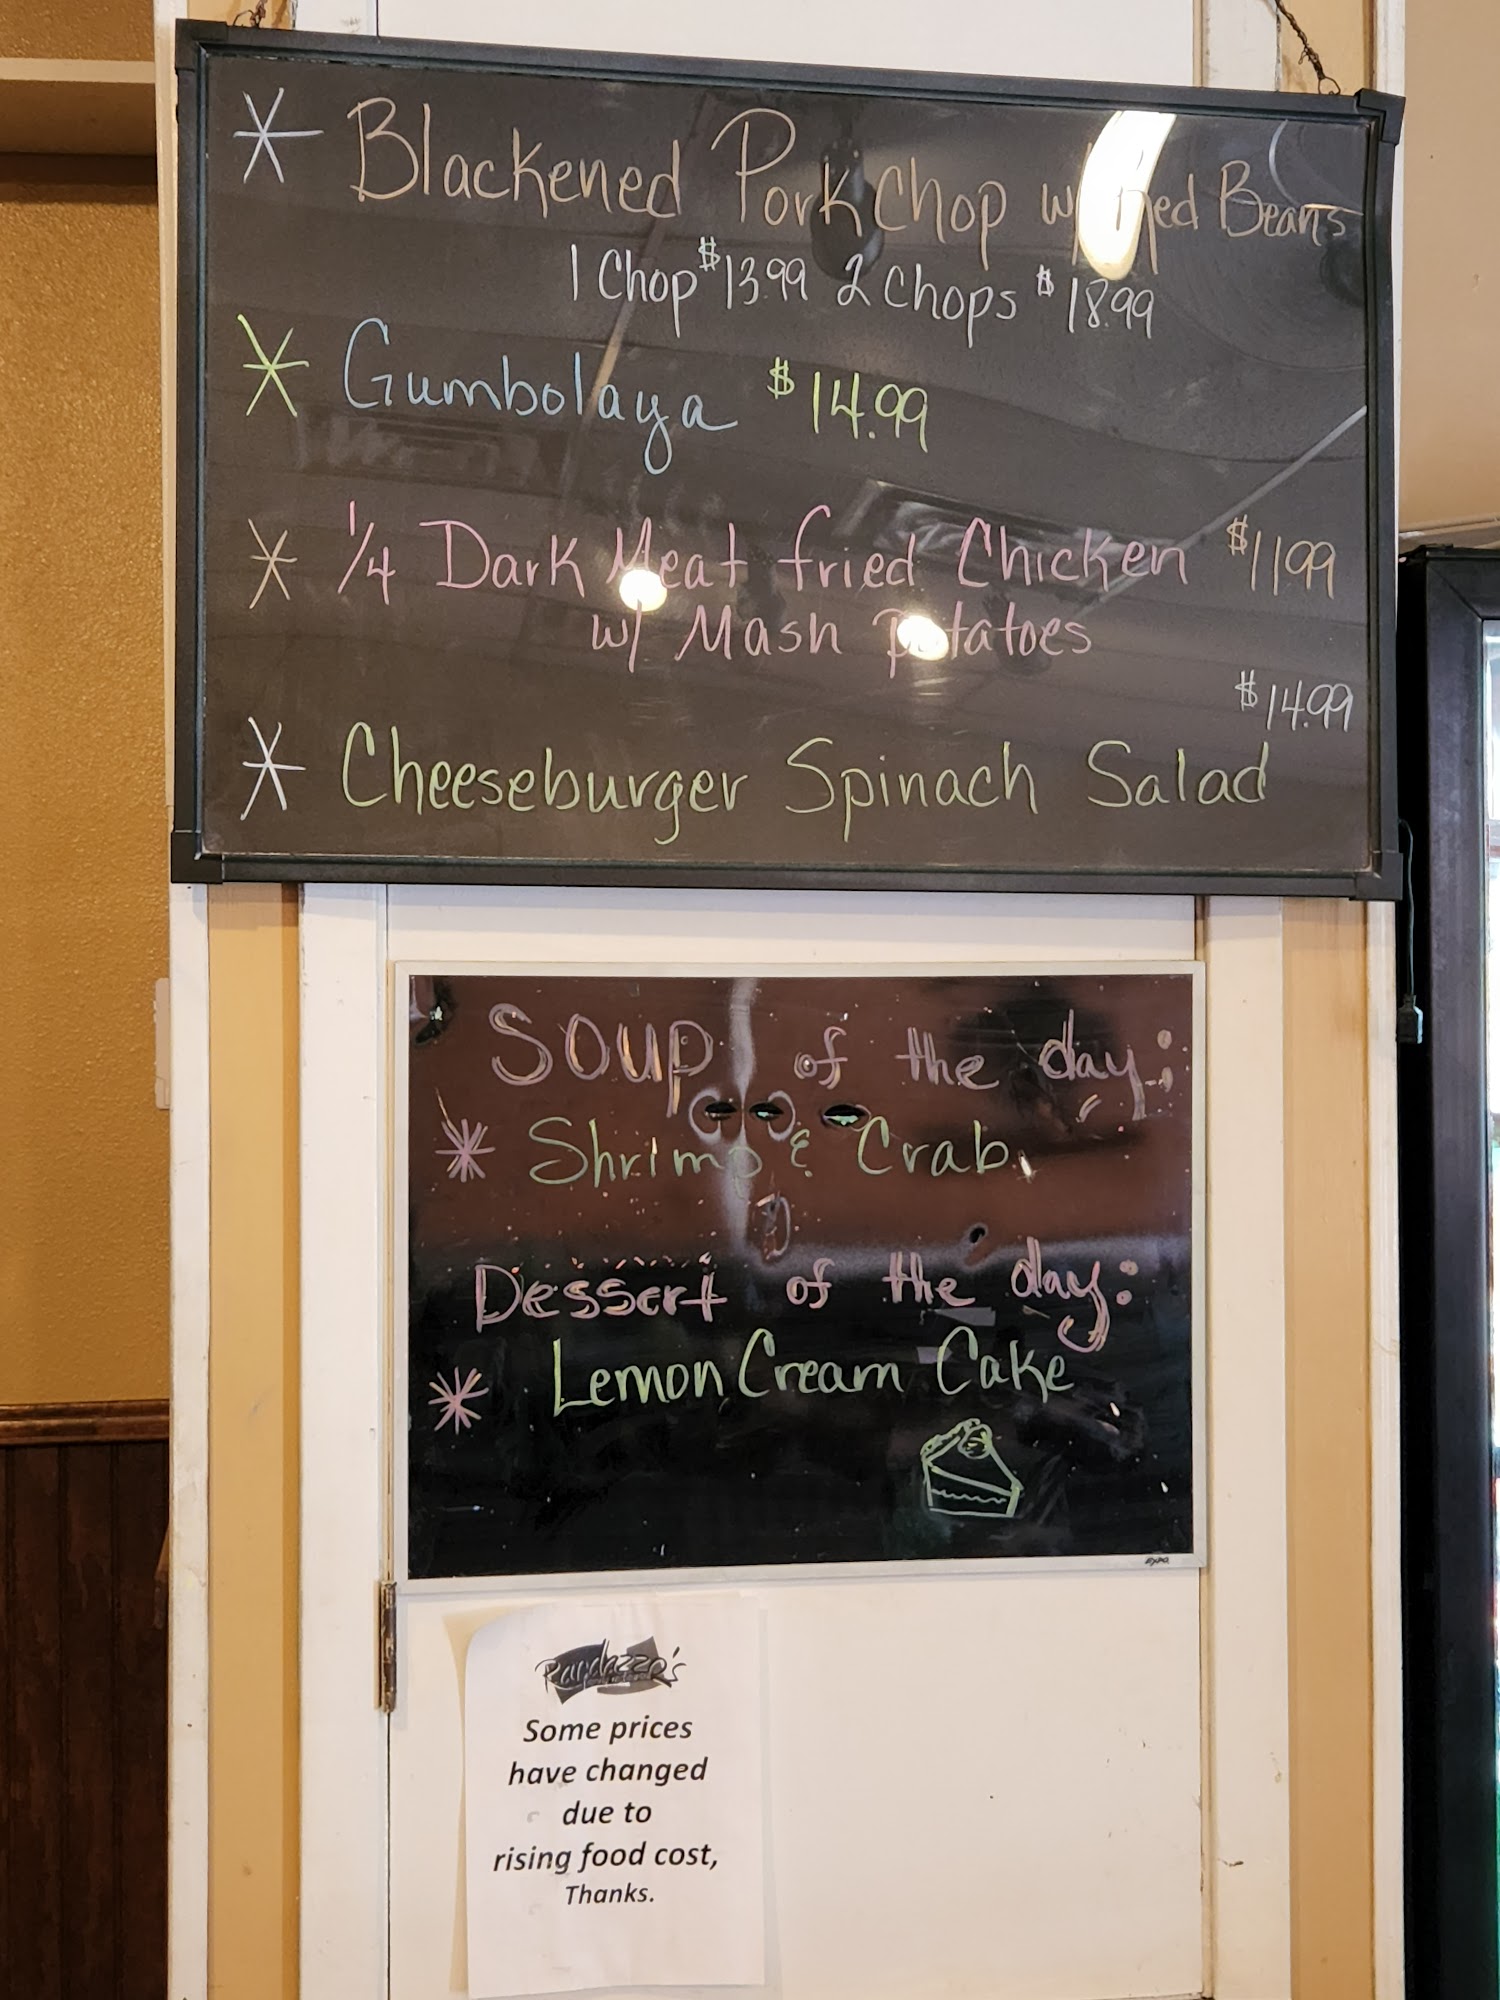 Blackened Pork Chop w/ Red Beans
1 Chop $13.99 2 Chops $18.99
Gumbolaya $14.99
1/4 Dark Meat fried Chicken $11.99
w/ Mash potatoes
$14.99
Cheeseburger Spinach Salad
Soup of the day:
Shrimp & Crab
Dessert of the day:
Lemon Cream Cake
EXPO
Randazzo's
Some prices
have changed
due to
rising food cost,
Thanks.